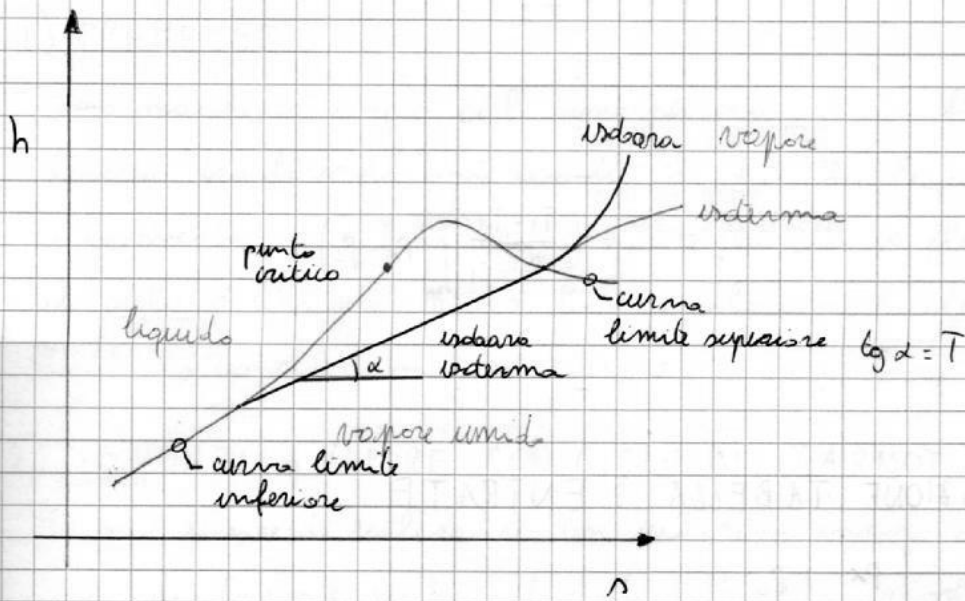 h
isobara vapore
isoterma
punto
critico
curva
limite superiore tg α = T
liquido
isobara
isoterma
α
vapore umido
curva limite
inferiore
s